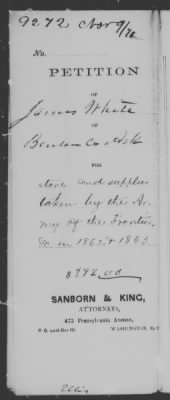 9272 Nov 9/76
No.
PETITION
OF
James White
OF
Benton Co Ark
FOR
stores and supplies
taken by the Ar-
my of the Frontier
in 1862 & 1863
$392.00
SANBORN & KING,
ATTORNEYS,
475 Pennsylvania Avenue,
WASHINGTON, D.C.
Ellis